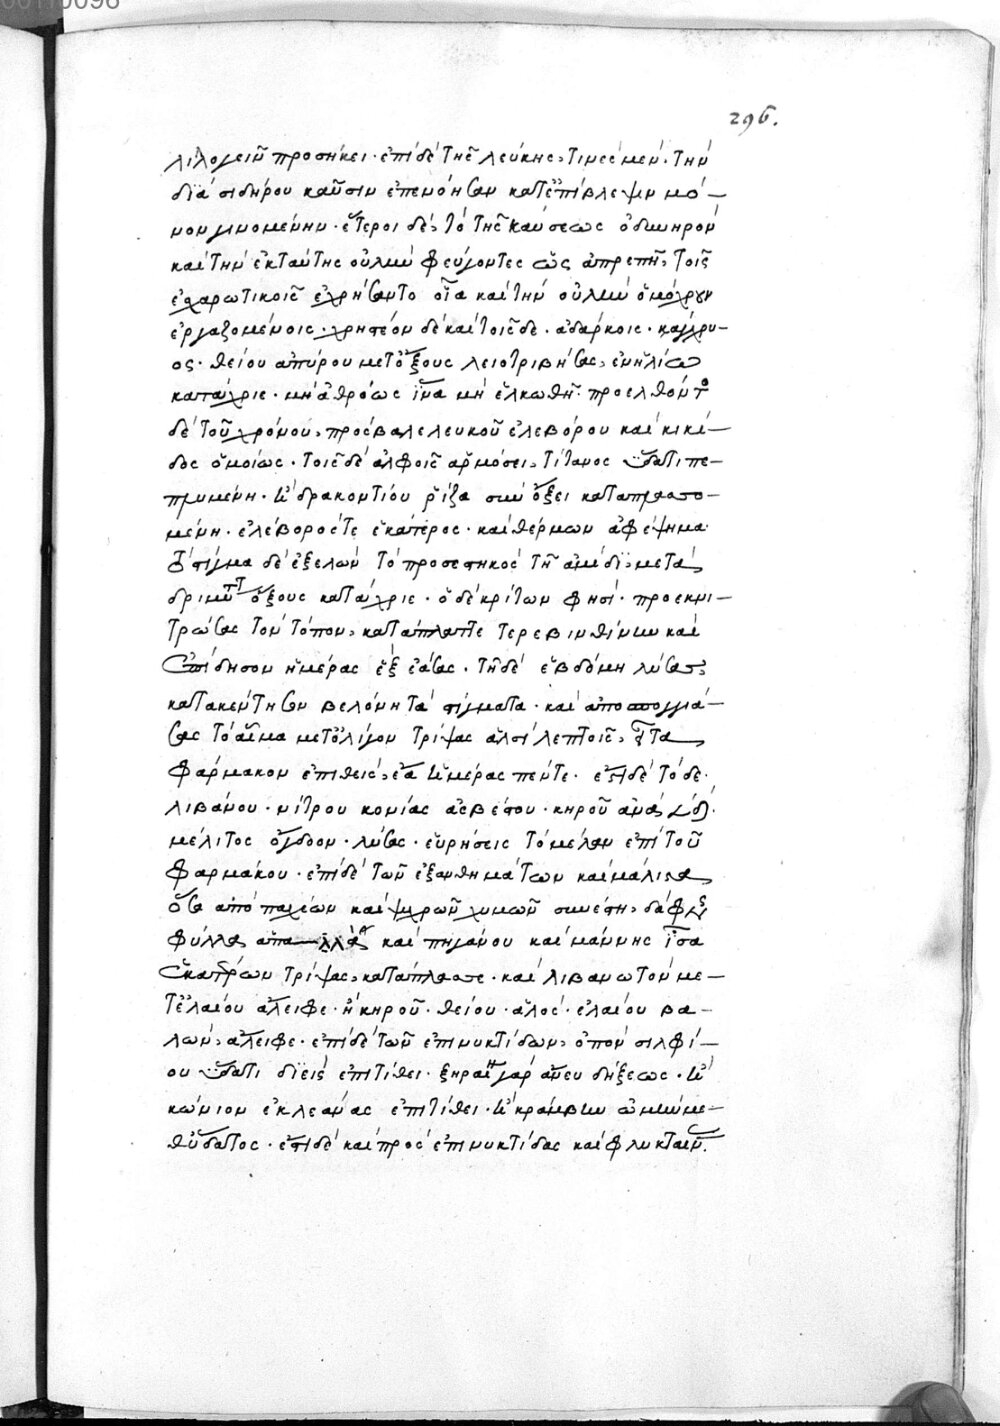 00110096
296.
λιλογεῖν προσήκει· ἐπὶ δὲ τῆς λεύκης, τινὲς μὲν· τὴν
διὰ σιδήρου καῦσιν ἐπενόησαν κατ' ἐπίβλεψιν μό-
νον γινομένην· ἕτεροι δὲ, τὸ τῆς καύσεως ὀδυνηρὸν
καὶ τὴν ἐκ ταύτης οὐλὴν φεύγοντες ὡς ἀπρεπῆ, τοῖς
ἐσχαρωτικοῖς ἐχρήσαντο οἷα καὶ τὴν οὐλὴν ὁμόχρουν
ἐργαζομένοις· χρηστέον δὲ καὶ τοῖς δε· ἀδάρκοις· κάχρυ-
ος· θείου ἀπύρου μετ' ὄξους λειοτριβήσας, ἐν ἡλίῳ
κατάχριε· μὴ ἀθρόως ἵνα μὴ ἑλκωθῇ· προελθόντος
δὲ τοῦ χρόνου, πρόσβαλε λευκοῦ ἐλεβόρου καὶ κικί-
δος ὁμοίως· τοῖς δὲ ἀλφοῖς ἁρμόσει, τίτανος ὕδατι πε-
πλυμένη· καὶ δρακοντίου ῥίζα σὺν ὄξει καταπλασσο-
μένη· ἐλέβορός τε ἑκάτερος· καὶ θέρμων ἀφέψημα·
στίγμα δὲ ἐξελὼν τὸ προσεστηκὸς τῇ ἀμίδι, μετὰ
δριμυτ' ὄξους κατάχριε· ὁ δὲ κρίτων φησὶ· προεκνι-
τρώσας τὸν τόπον, κατάπλαττε τερεβινθίνην καὶ
ἐπίδησον ἡμέρας ἓξ ἐάσας· τῇ δὲ ἑβδόμῃ λύσας,
κατακέντησον βελόνῃ τὰ στίγματα· καὶ ἀποσπογγιά-
σας τὸ αἷμα μετ' ὀλίγον τρίψας ἁλσὶ λεπτοῖς, εἶτα
φάρμακον ἐπιθεὶς, ἔα ἡμέρας πέντε· ἔστι δὲ τὸ δε·
λιβάνου· νίτρου κονίας ἀσβέστου· κηροῦ ἀνὰ
μέλιτος ὄγδοον· λύσας· εὑρήσεις τὸ μέλαν ἐπὶ τοῦ
φαρμάκου· ἐπὶ δὲ τῶν ἐξανθημάτων καὶ μάλιστα,
ὅσα ἀπὸ παχέων καὶ ψυχρῶν χυμῶν συνέστη, δάφνης
φύλλα ἁπαλλὰ καὶ πηγάνου καὶ μάννης ἴσα
ἑκατέρων τρίψας, κατάπλασσε· καὶ λιβανωτὸν με-
τ' ἐλαίου ἄλειφε· ἢ κηροῦ· θείου· ἁλὸς· ἐλαίου βα-
λὼν, ἄλειφε· ἐπὶ δὲ τῶν ἐπινυκτίδων, ὀπὸν σιλφί-
ου ὕδατι διεὶς ἐπιτίθει· ξηραίνει γὰρ ἄνευ δήξεως· καὶ
κώνιον ἐκλεάνας ἐπιτίθει· καὶ κράμβην ὠμὴν με-
θ' ὕδατος· ἔστι δὲ καὶ πρὸς ἐπινυκτίδας καὶ φλυκταίν.